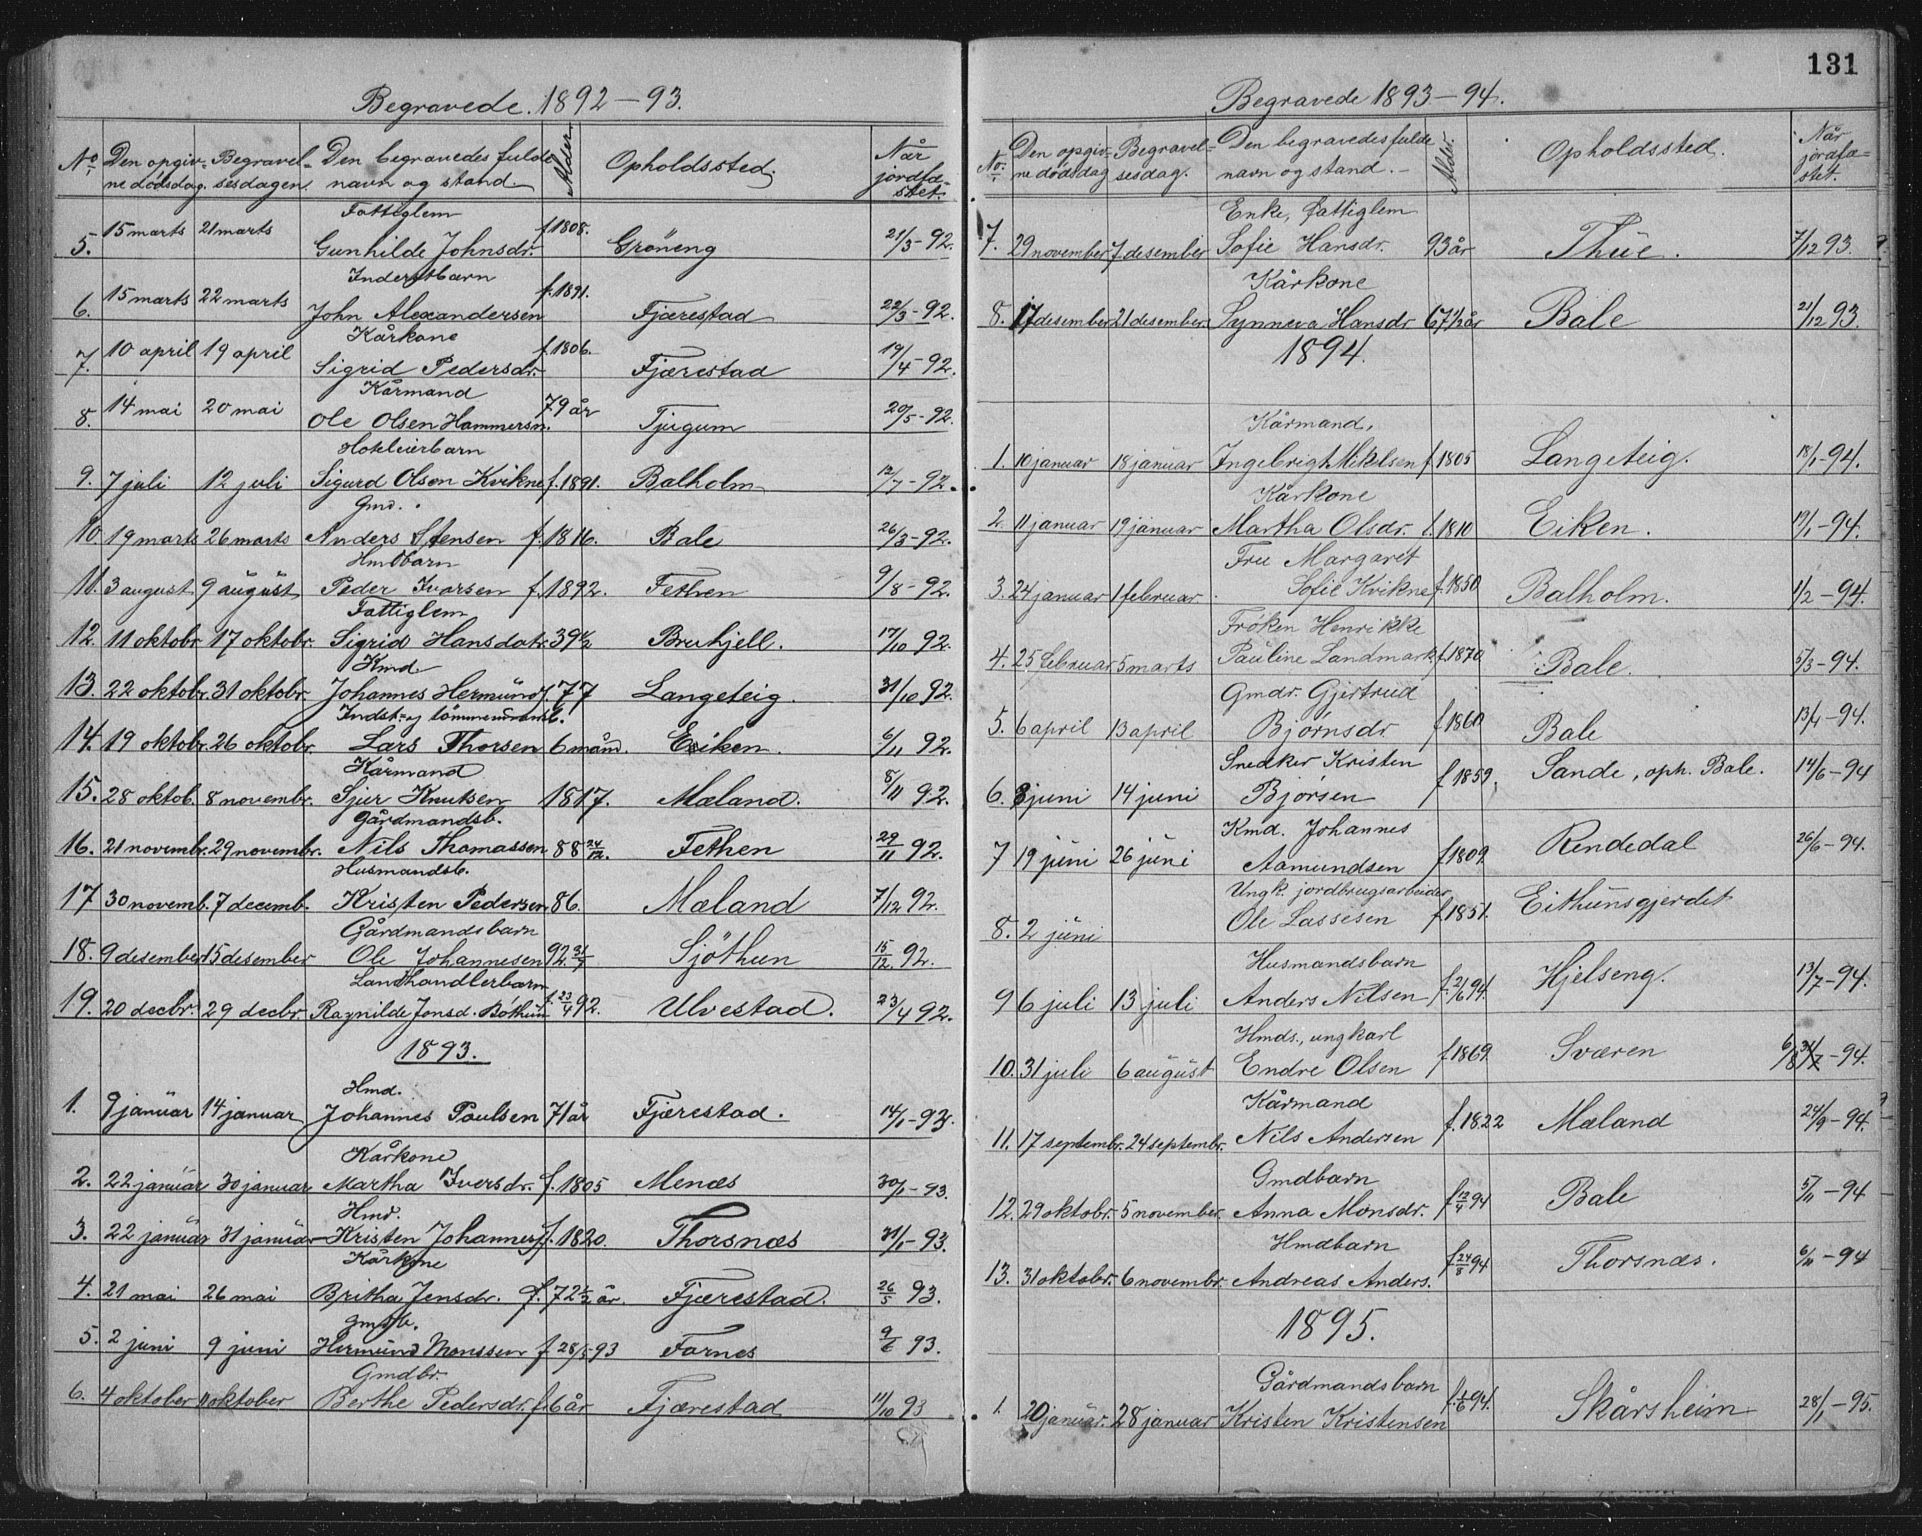 Begravede. 1892-93.
No. Den opgivne dødsdag. Begravelsesdagen. Den begravedes fulde navn og stand. Alder. Opholdssted. Når jordfæstet.
Fattiglem
5. 15 marts 21 marts Gunhilde Johnsdr. f 1808. Gröneng 21/3-92.
Inderstbarn
6. 15 marts 22 marts John Alexandersen f. 1891. Fjærestad 22/3-92.
Kårkone
7. 10 april 19 april Sigrid Pedersdr. f. 1806. Fjærestad 19/4-92.
Kårmand
8. 14 mai 20 mai Ole Olsen Hammersn. 79 år Tjugum 20/5-92.
Hotelierbarn
9. 7 juli 12 juli Sigurd Olsen Kvikne f. 1891. Balholm 12/7-92.
Gmd.
10. 19 marts 26 marts Anders Stensen f. 1816. Bale 26/3-92.
Hmdbarn
11. 3 august 9 august Peder Ivarsen f. 1892. Fethen 9/8-92.
Fattiglem
12. 11 oktobr. 17 oktobr. Sigrid Hansdatr. 39 1/2 Bruhjell. 17/10 92.
Kmd.
13. 22 oktobr. 31 oktobr. Johannes Hermund 77 Langeteig. 31/10 92.
Indst. og tömmermandsb.
14. 19 oktobr. 26 oktobr. Lars Thorsen 6 månd. Eiken. 6/11 92.
Kårmand
15. 28 oktob. 8 novembr. Sjur Knutsen 1817. Mæland. 8/11 92.
Gårdmandsb.
16. 21 novembr. 29 novembr. Nils Thomassen 88 24/12. Fethen 29/11 92.
Husmandsb.
17 30 novemb. 7 decemb. Kristen Pedersen 86. Mæland 7/12 92.
Gårdmandsbarn
18. 9 desember 15 desember Ole Johannesen 92 31/7 Sjöthun 15/12 92.
Landhandlerbarn
19. 20 decbr. 29 decbr. Ragnilde Jonsd. Böthun f. 23/4 92. Ulvestad. 23/4 92.
1893.
Hmd.
1. 9 januar 14 januar Johannes Poulsen 71 år Fjærestad. 14/1-93.
Kårkone
2. 22 januar 30 januar Martha Iversdr. f. 1805 Menæs 30/1-93.
Hmd.
3. 22 januar 31 januar Kristen Johannes f. 1820. Thorsnæs 31/1-93.
Kårkone
4. 21 mai 26 mai Britha Jensdr. f. 72 1/2 år. Fjærestad. 26/5 93.
Gmdb.
5. 2 juni 9 juni Hermund Monssen f 28/5-93 Farnes 9/6 93.
Gmdbr.
6. 4 oktober 11 oktober Berthe Pedersdr. f. 6 år Fjærestad 11/10 93
131
Begravede 1893-94.
No. Den opgivne dødsdag Begravelsesdag. Den begravedes fulde navn og stand. Alder. Opholdssted. Når jordfæstet.
Enke, fattiglem
7. 29 november 7 desember Sofie Hansdr. 93 år Thue. 7/12 93.
Kårkone
8. 17 desember 21 desember Synneva Hansdr 67 1/2 år Bale 21/12 93.
1894.
Kårmand,
1. 10 januar 18 januar Ingebrigt Mikelsen f. 1805 Langeteig. 18/1-94.
Kårkone
2. 11 januar 19 januar Martha Olsdr. f. 1810 Eiken. 19/1-94.
Fru Margaret
3. 24 januar 1 februar Sofie Kvikne f. 1850 Balholm. 1/2-94.
Fröken Henrikke
4. 25 februar 5 marts Pauline Landmark f. 1870 Bale. 5/3-94.
Gmdr. Gjertrud
5. 6 april 13 april Bjørnsdr. f 1860 Bale 13/4-94.
Snedker Kristen
6. 8 juni 14 juni Bjørsen f 1859. Sande, oph. Bale. 14/6-94
Kmd. Johannes
7 19 juni 26 juni Aamundsen f 1809. Rendedal 26/6-94.
Ungk. jordbrugsarbeider
8. 2 juni Ole Lassesen f. 1851. Eithunsgjerdet
Husmandsbarn
9 6 juli 13 juli Anders Nilsen f. 2/6 94. Hjelseng. 13/7-94.
Hmds., ungkarl
10. 31 juli 6 august Endre Olsen f 1869. Sværen 6/8 31/7-94.
Kårmand
11. 17 septembr. 24 septembr. Nils Andersen f. 1822 Mæland 24/9-94.
Gmdbarn
12. 29 oktobr. 5 november. Anna Monsdr. f 12/4 94 Bale 5/11-94
Hmdbarn
13. 31 oktobr. 6 novembr. Andreas Anders. f 24/8 94 Thorsnæs. 6/11-94
1895.
Gårdmandsbarn
1. 20 januar. 28 januar Kristen Kristensen f. 1/6 94. Skårsheim 28/1-95.